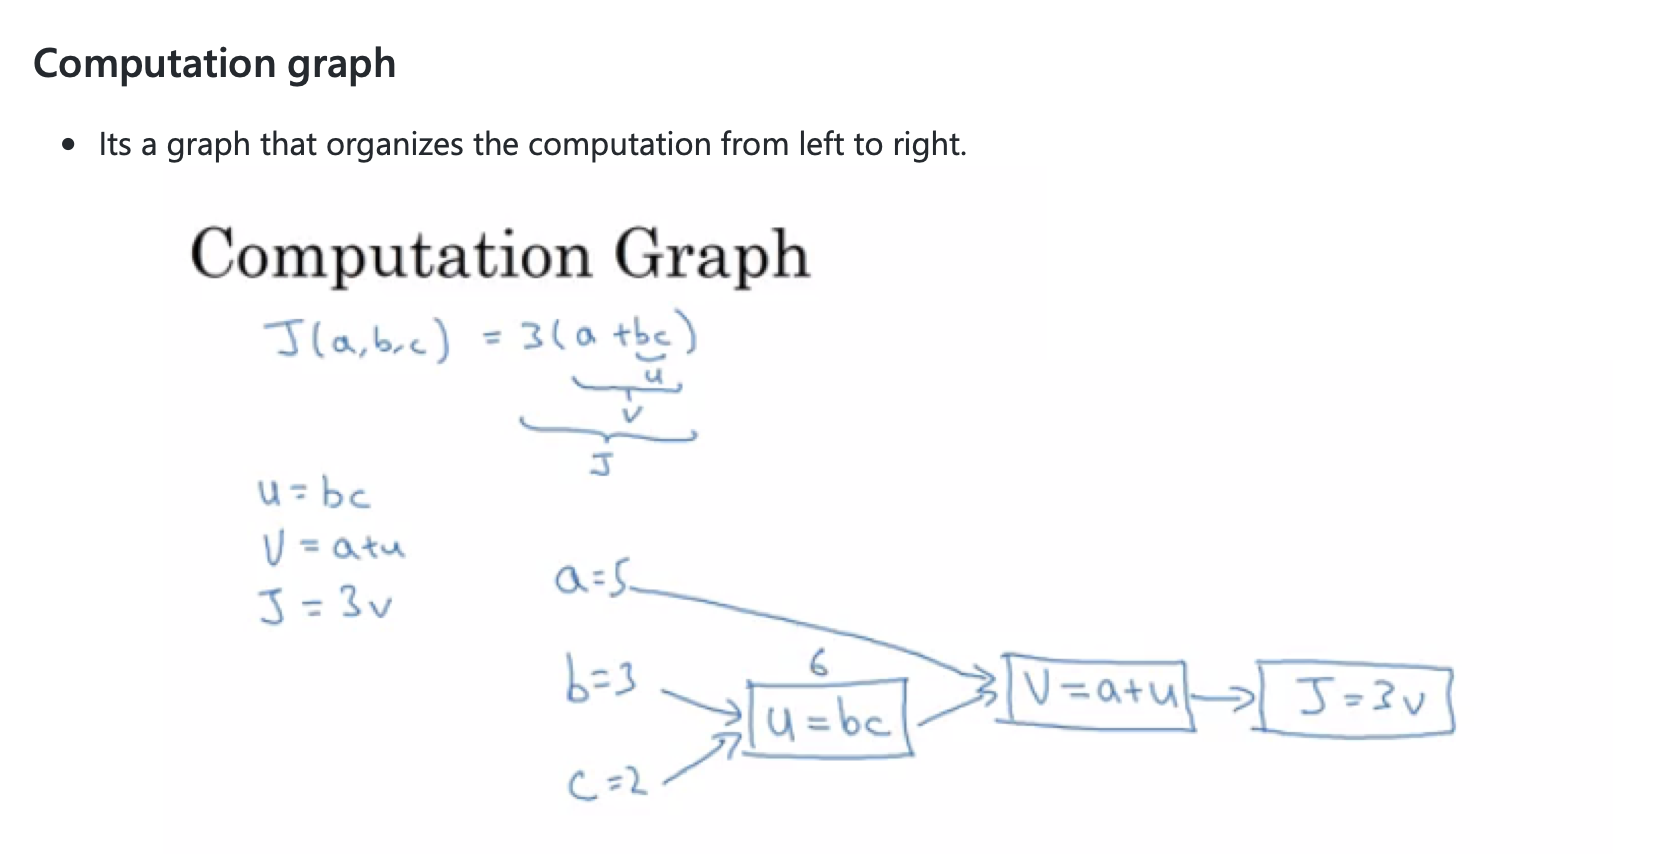 Computation graph
• Its a graph that organizes the computation from left to right.
Computation Graph
J(a,b,c) = 3(a+bc)
u
v
J
u = bc
V = a+u
J = 3v
a=5
b=3
c=2
6
u = bc
V = a+u
J = 3v